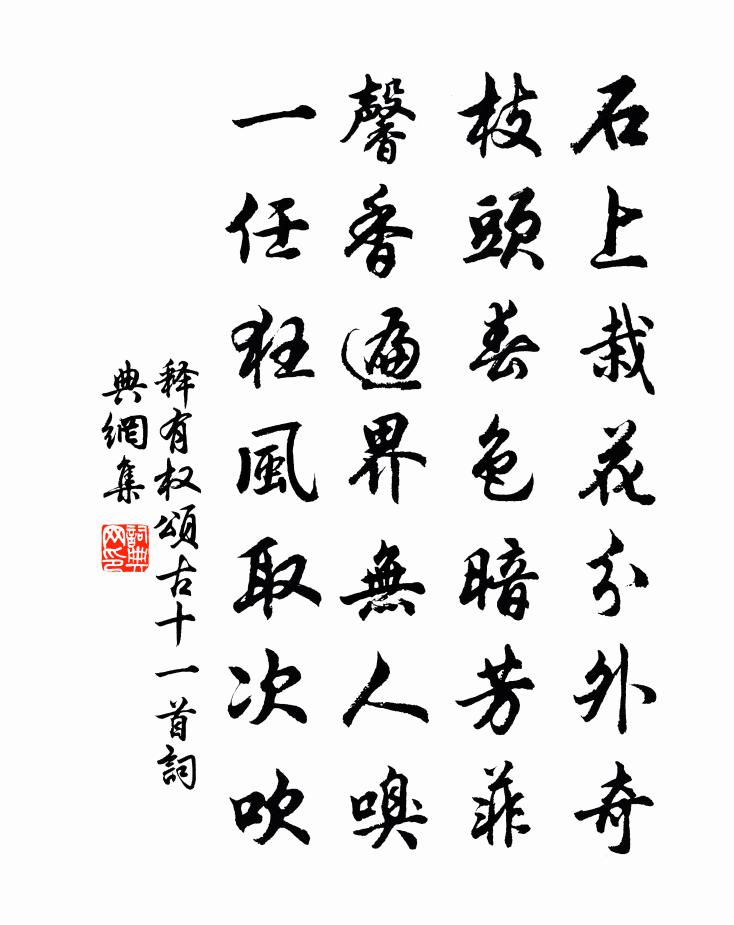 石上栽花分外奇
枝頭春色暗芳菲
馨香遍界無人嗅
一任狂風取次吹
释有权頌古十一首詞
典網集
詞典
网印